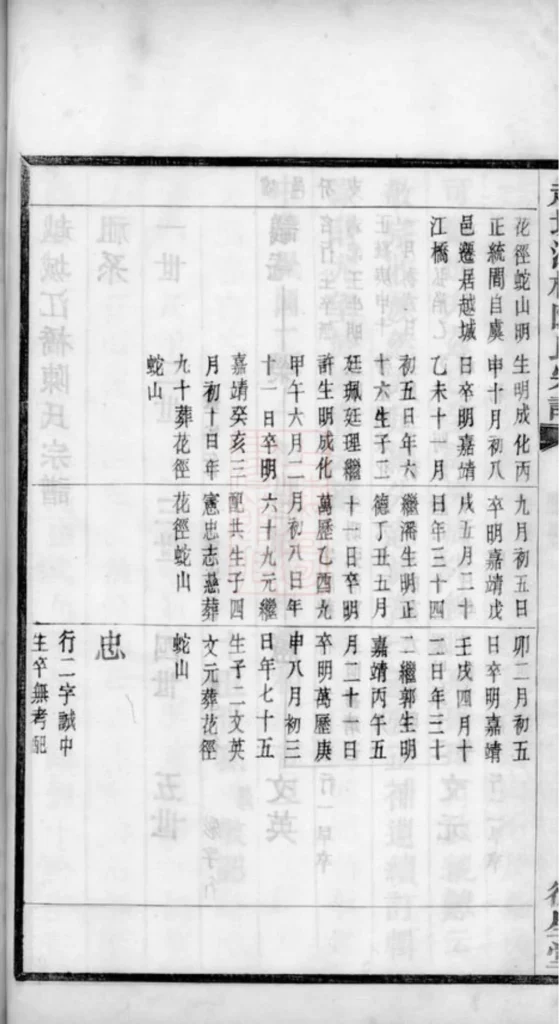 花徑蛇山明
正統間自虞
邑遷居越城
江橋
生明成化丙
申十月初八
日卒明嘉靖
乙未十一月
初五日年六
十六生子二
廷珮廷理繼
許生明成化
甲午六月二
十一日卒明
嘉靖癸亥三
月初十日年
九十葬花徑
蛇山
九月初五日
卒明嘉靖戊
戌五月二十
日年三十四
繼潘生明正
德丁丑五月
十一日卒明
萬歷乙酉九
月初八日年
六十九元繼
配共生子四
憲忠志慈葬
花徑蛇山
卯二月初五
日卒明嘉靖
壬戌四月十
二日年三十
二繼郭生明
嘉靖丙午五
月二十一日
卒明萬歷庚
申八月初三
日年七十五
生子二文英
文元葬花徑
蛇山
忠
行二字誠中
生卒無考配